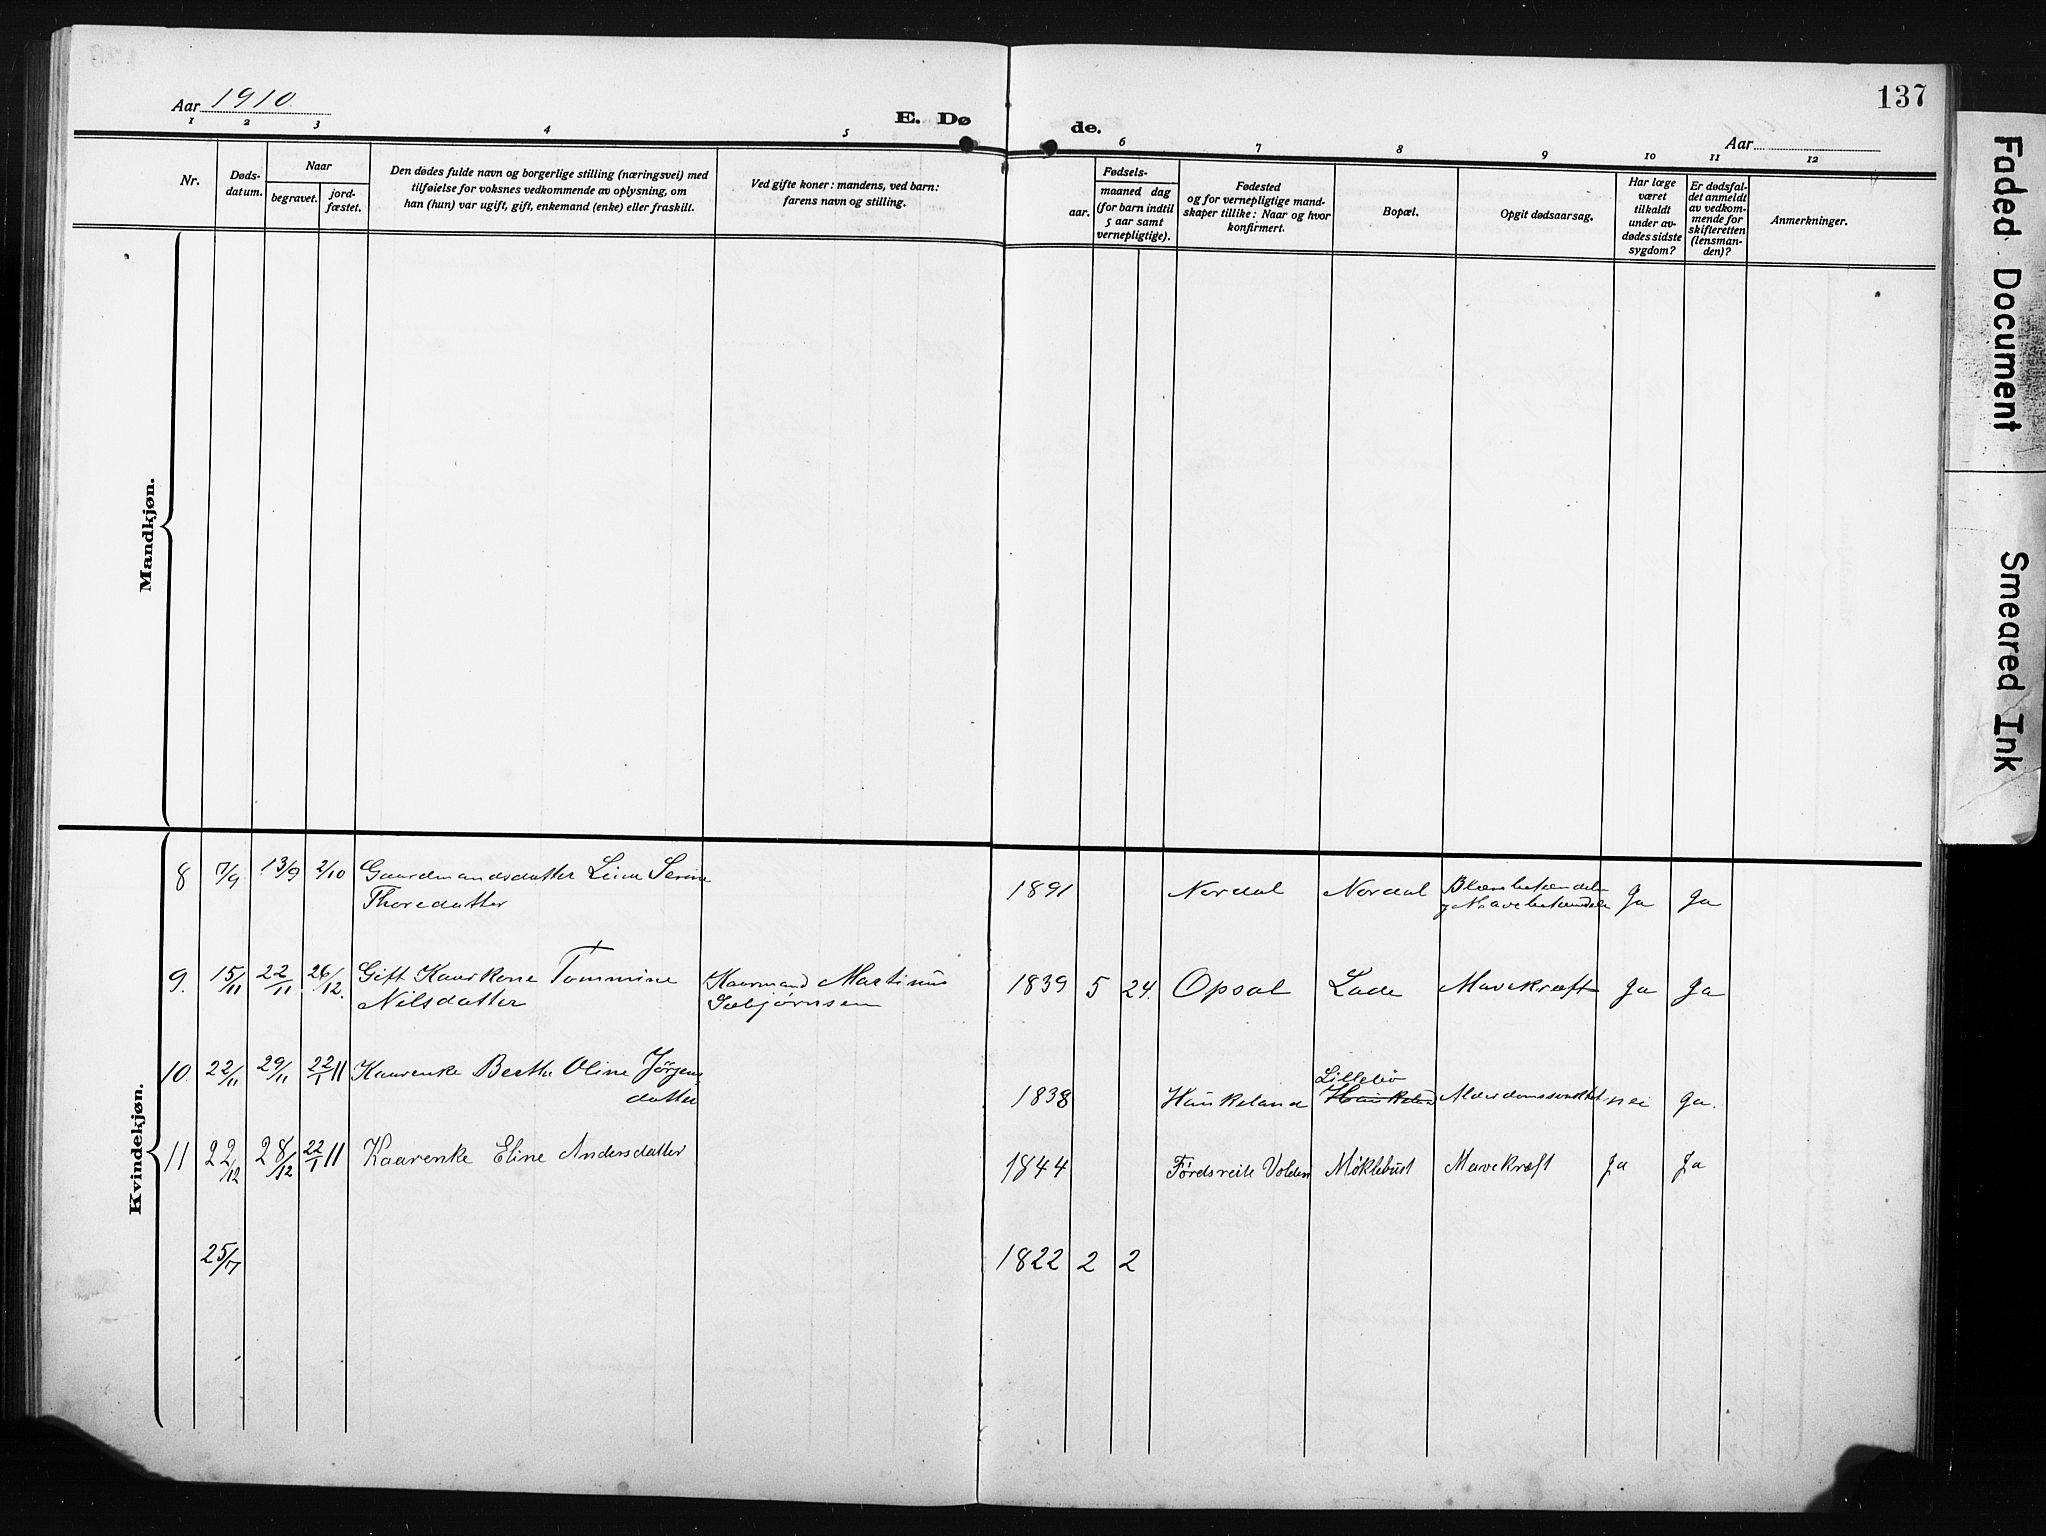 Aar 1910.
E. Døde.
137
Aar
1 2 3 4 5 6 7 8 9 10 11 12
Nr.
Dødsdatum.
Naar
begravet.
jordfæstet.
Den dødes fulde navn og borgerlige stilling (næringsvei) med
tilføielse for voksnes vedkommende av oplysning, om
han (hun) var ugift, gift, enkemand (enke) eller fraskilt.
Ved gifte koner: mandens, ved barn:
farens navn og stilling.
Fødsels-
aar.
maaned dag
(for barn indtil
5 aar samt
vernepligtige).
Fødested
og for vernepligtige mand-
skaper tillike: Naar og hvor
konfirmert.
Bopæl.
Opgit dødsaarsag.
Har læge
været
tilkaldt
under av-
dødes sidste
sygdom?
Er dødsfal-
det anmeldt
av vedkom-
mende for
skifteretten
(lensman-
den)?
Anmerkninger.
Mandkjøn.
Kvindekjøn.
8 7/9 13/9 2/10 Gaardmandsdatter Lina Serine
Thoredatter
1891 Nordal Nordal
Ja Ja
9. 15/11 22/11 26/12. Gift Kaarkone Tommine
Nilsdatter
Kaarmand Martinus
1839 5 24. Opsal Lade Mavekræft Ja Ja
10. 22/11 29/11 22/1 11 Kaarenke Berthe Oline Jørgens
datter
1838 Haukeland Lillebø
Haukeland
nei Ja.
11 22/12 28/12 22/1 11 Kaarenke Eline Andersdatter
1844 Førdsreite Volden Møklebust Mavekræft Ja Ja
25/7 1822 2 2
Faded Document
Smeared Ink